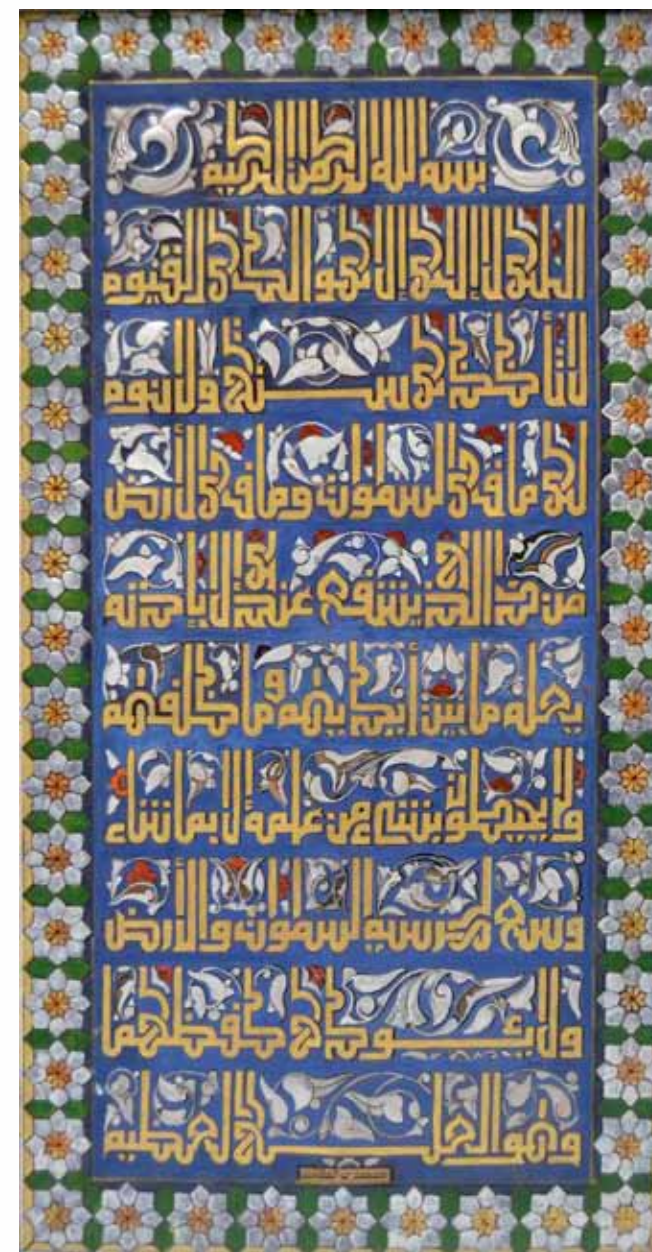 بسم الله الرحمن الرحيم
الله لا إله إلا هو الحي القيوم
لا تأخذه سنة ولا نوم
له ما في السموت وما في الأرض
من ذا الذي يشفع عنده إلا بإذنه
يعلم ما بين أيديهم وما خلفهم
ولا يحيطون بشيء من علمه إلا بما شاء
وسع كرسيه السموت والأرض
ولا يئوده حفظهما
وهو العلي العظيم